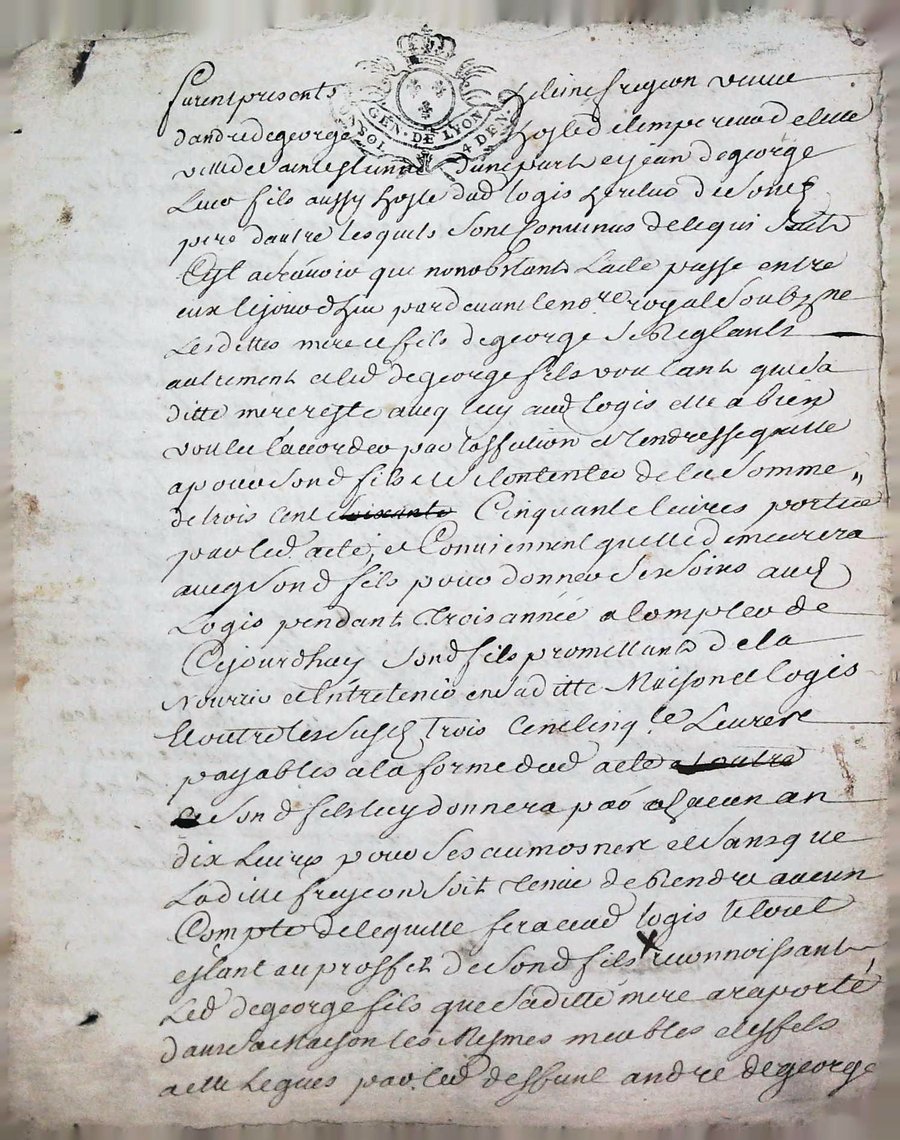 furent presents heleine freycon veuve
GEN. DE LYON
SOL 4 DEN
dandre degeorge hoste d et
ville de saint estienne dune part et jean degeorge
leur fils aussy hoste dud logis heritier de sond
pere dautre lesquels sont convenus de ce qui suit
Cest a scavoir que nonobstant lacte passe entre
eux cejourdhuy pardevant le nore royal soubzne
lesdittes mere et fils degeorge se reglants
autrement et led degeorge fils voulant que sa
ditte mere reste avecq luy aud logis elle a bien
voulu laccorder par laffection et tendresse quelle
a pour sond fils et se contenter de la somme
de trois cent soixante Cinquante livres portée
par led acte, et Conviennent quelle demeurera
avecq sond fils pour donner ses soins aud
Logis pendant trois année a Compter de
Cejourdhuy sond fils promettant de la
nourrir et entretenir en saditte Maison et logis
et outre les susd trois cent cinqte livres
payables a la forme dud acte et outre
sond fils luy donnera par chacun an
dix livres pour ses aumosnes et sans que
laditte freycon soit tenue de rendre aucun
Compte de ce quelle fera aud logis le tout
estant au proffit de sond fils x reconnoissant
led degeorge fils que saditte mere a raporté
dans sa Maison les Mesmes meubles et effets
a elle legues par led deffunt andre degeorge